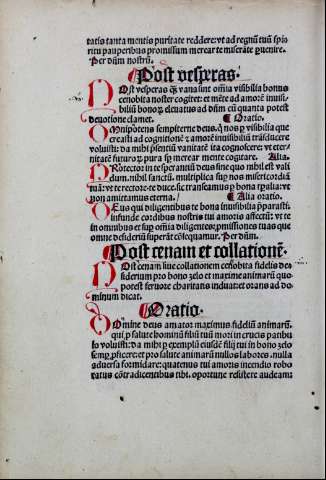 ratis tanta mentis puritate reddere: vt ad regnũ tuũ spi⸗
ritu pauperibus promissum merear te miserãte puenire.
Per dñm nostrũ.
Post vesperas.
POst vesperas q̃ȝ vana sint omnia visibilia bonus
cenobita noster cogitet: et mẽte ad amorẽ inuisi⸗
biliũ bonoȝ eleuatus ad dñm cũ quanta potest
deuotione clamet. Oratio.
OMnipotens sempiterne deus. q̃ nos p visibilia que
creasti ad cognitionẽ ⁊ amorẽ inuisibiliũ trãsducere
voluisti: da mihi psentiũ vanitatẽ ita cognoscere: vt eter⸗
nitatẽ futuroȝ pura sp mercar mente cogitare. Alia.
PRotector in te sperantiũ deus sine quo nihil est vali
dum. nihil sanctũ. multiplica sup nos misericordiã
tuã: vt te rectore. te duce. sic transeamus p bona tpalia: vt
non amittamus eterna. Alia oratio.
DEus qui diligentibus te bona inuisibilia pparasti:
infunde cordibus nostris tui amoris affectũ: vt te
in omnibus et sup omnia diligentes: pmissiones tuas que
omne desideriũ superãt cõsequamur. Per dñm.
Post cenam et collationẽ.
POst cenam siue collationem cenobita fidelis de⸗
siderium pro bono zelo et maxime animarũ quo
potest feruore charitatis induat: et orans ad do
minum dicat.
Oratio.
DOmine deus amator maximus fideliũ animarũ.
qui p salute hominũ filiũ tuũ mori in crucis patibu
lo voluisti: da mihi p exemplũ eiusdẽ filij tui in bono zelo
semp pficere: et pro salute animarũ nullos labores. nulla
aduersa formidare: quatenus tui amoris incendio robo
ratus cõtradicentibus tibi. oportune resistere audeam: